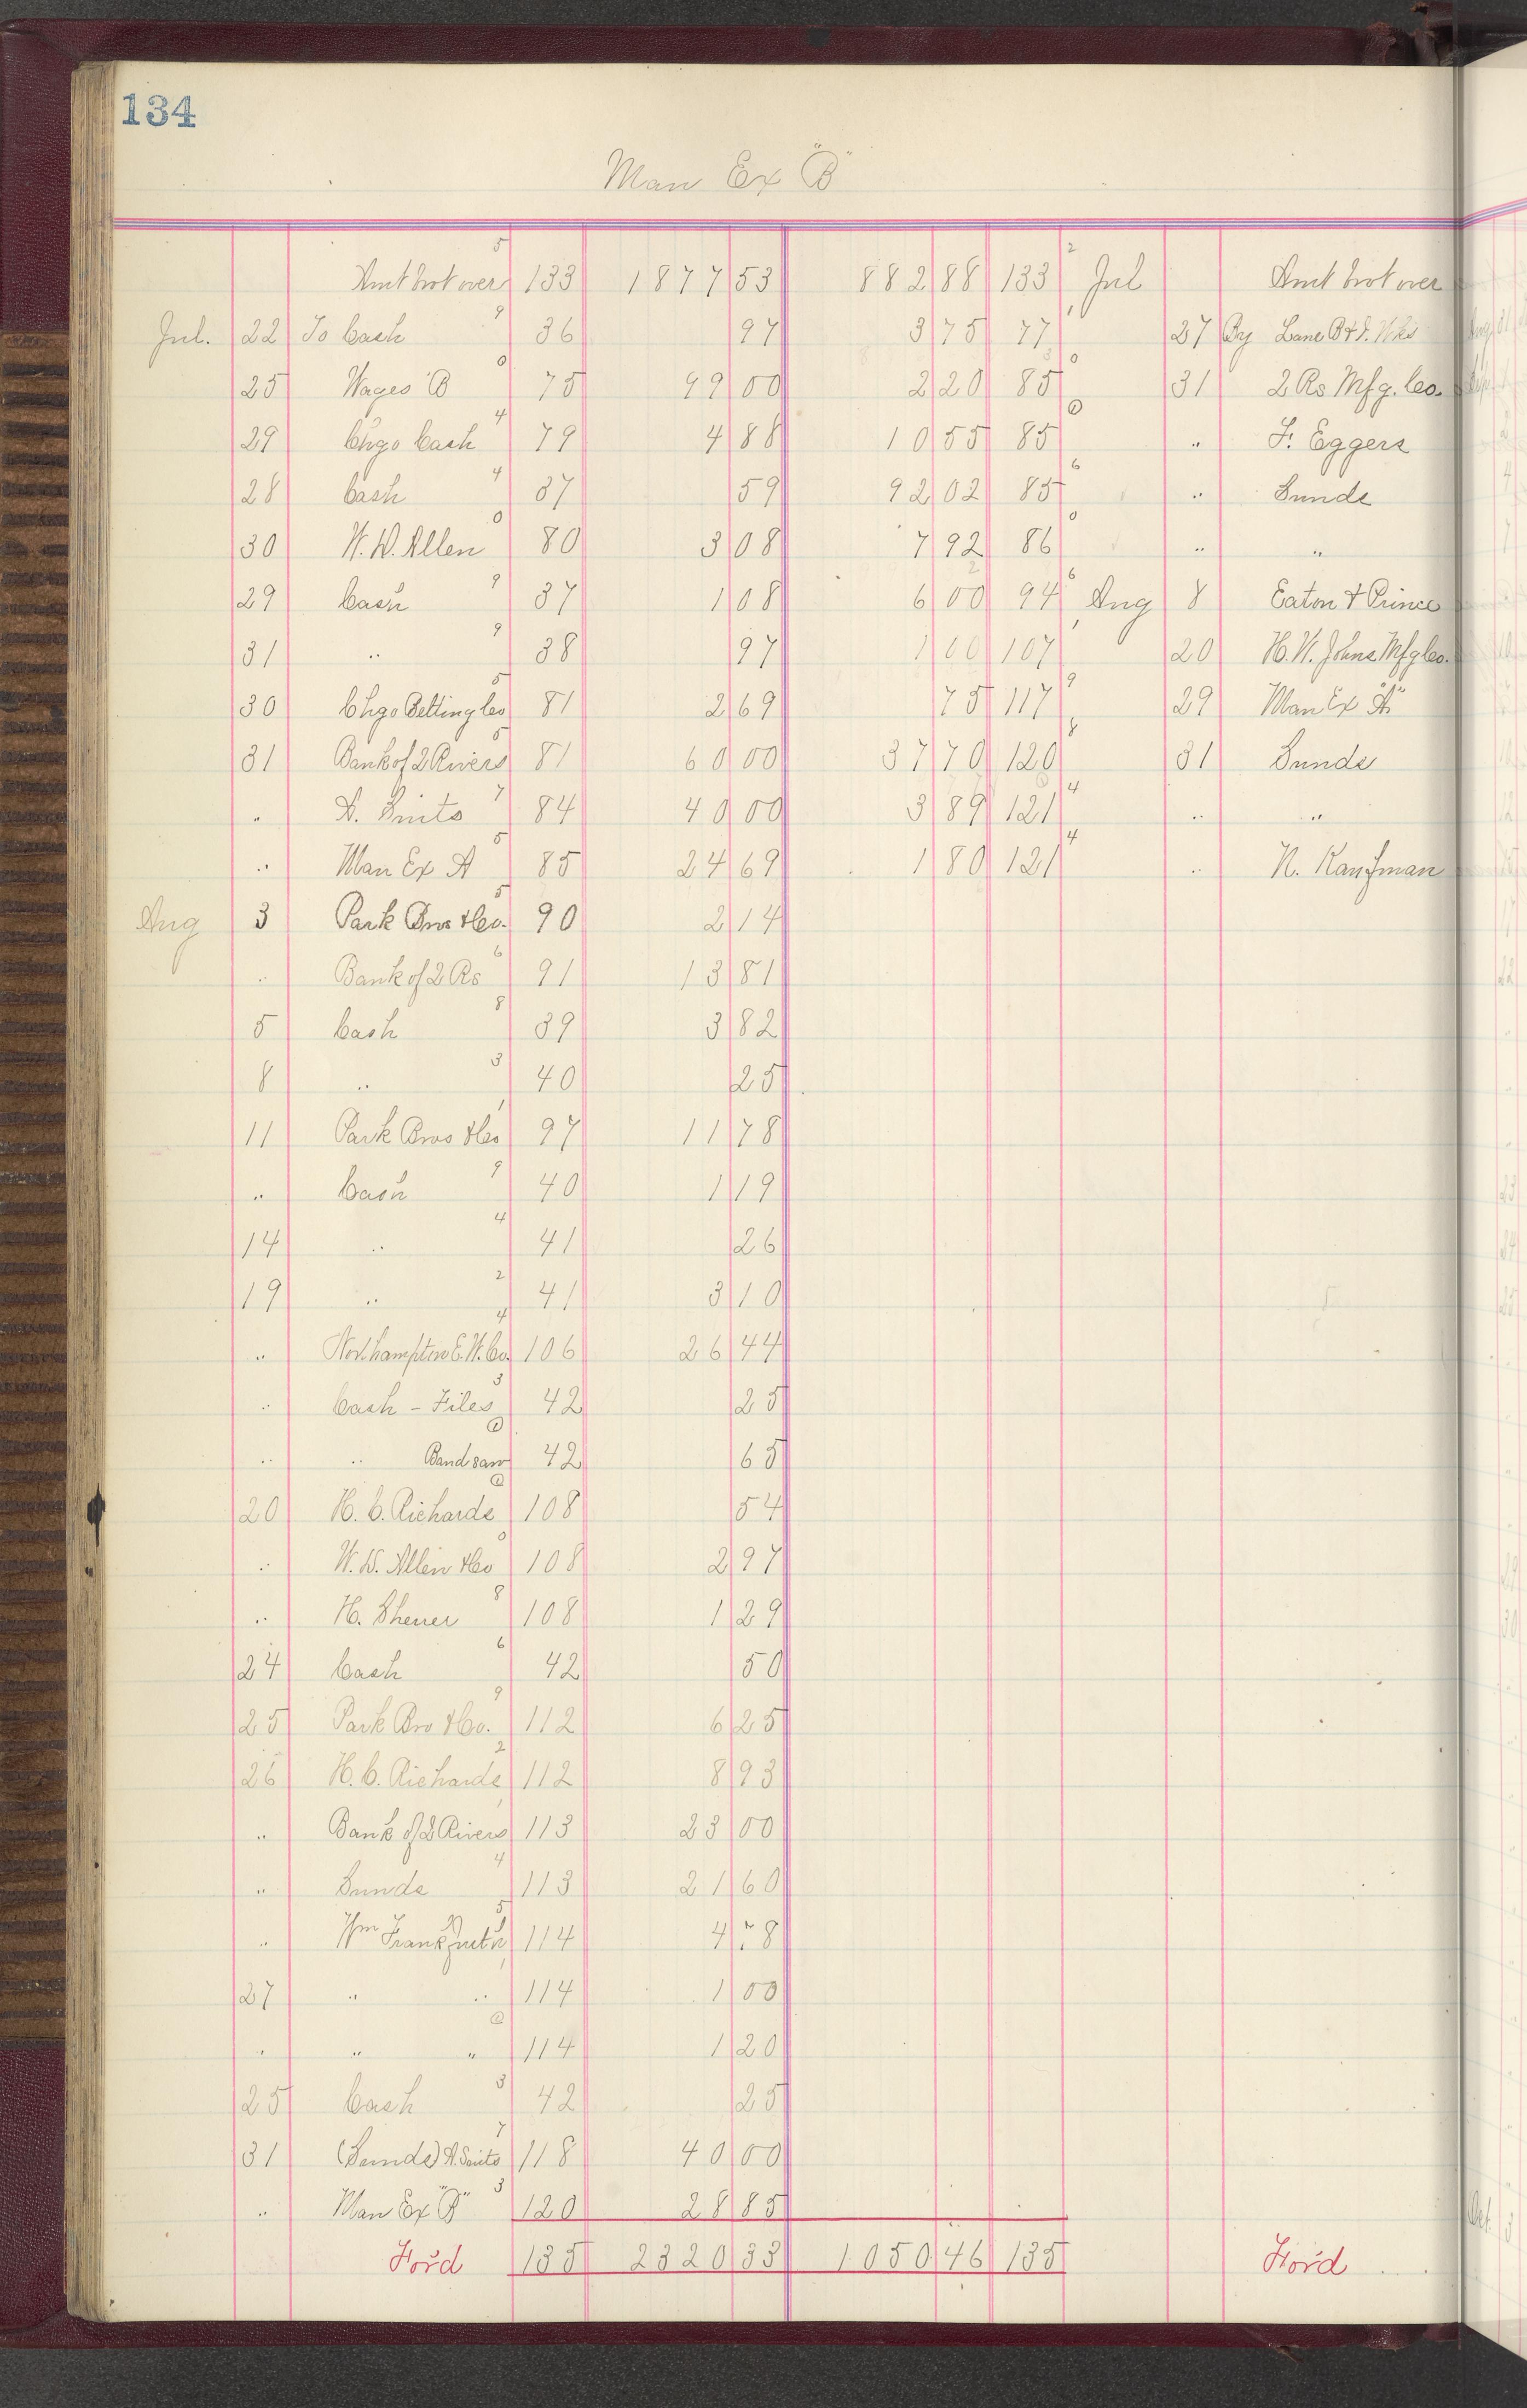 134
Man Ex "B"
Amt brot over 133 1877 53 882 88 133 Jul Amt brot over
Jul. 22 To Cash 36 97 3 75 77 27 By Lane B & F. Wks
25 Wages B 75 99 00 2 20 85 31 2 Rs Mfg. Co.
29 Chgo Cash 79 4 88 10 55 85 " F. Eggers
28 Cash 37 59 92 02 85 " Sunds
30 W. D. Allen 80 3 08 7 92 86 " "
29 Cash 37 1 08 6 00 94 Aug 8 Eaton & Prince
31 " 38 97 1 60 107 20 H. W. Johns Mfg Co.
30 Chgo Belting Co 81 2 69 75 117 29 Man Ex "A"
31 Bank of 2 Rivers 81 60 00 37 70 120 31 Sunds
" A. Smits 84 40 00 3 89 121 " "
" Man Ex A 85 24 69 1 80 121 " N. Kaufman
Aug 3 Park Bros & Co. 90 2 14
" Bank of 2 Rs 91 13 81
5 Cash 39 3 82
8 " 40 25
11 Park Bros & Co 97 11 78
" Cash 40 1 19
14 " 41 26
19 " 41 3 10
" Northampton E. W. Co. 106 26 44
" Cash - Files 42 25
" " Bandsaw 42 65
20 H. C. Richards 108 54
" W. D. Allen & Co 108 2 97
" H. Sheuer 108 1 29
24 Cash 42 50
25 Park Bro & Co. 112 6 25
26 H. C. Richards 112 8 93
" Bank of 2 Rivers 113 23 00
" Sunds 113 21 60
" Wm Frankfurth 114 4 8
27 " " 114 1 00
" " " 114 1 20
25 Cash 42 25
31 (Sunds) A. Smits 118 40 00
" Man Ex "B" 120 28 85
For'd 135 2320 33 1050 46 135 For'd